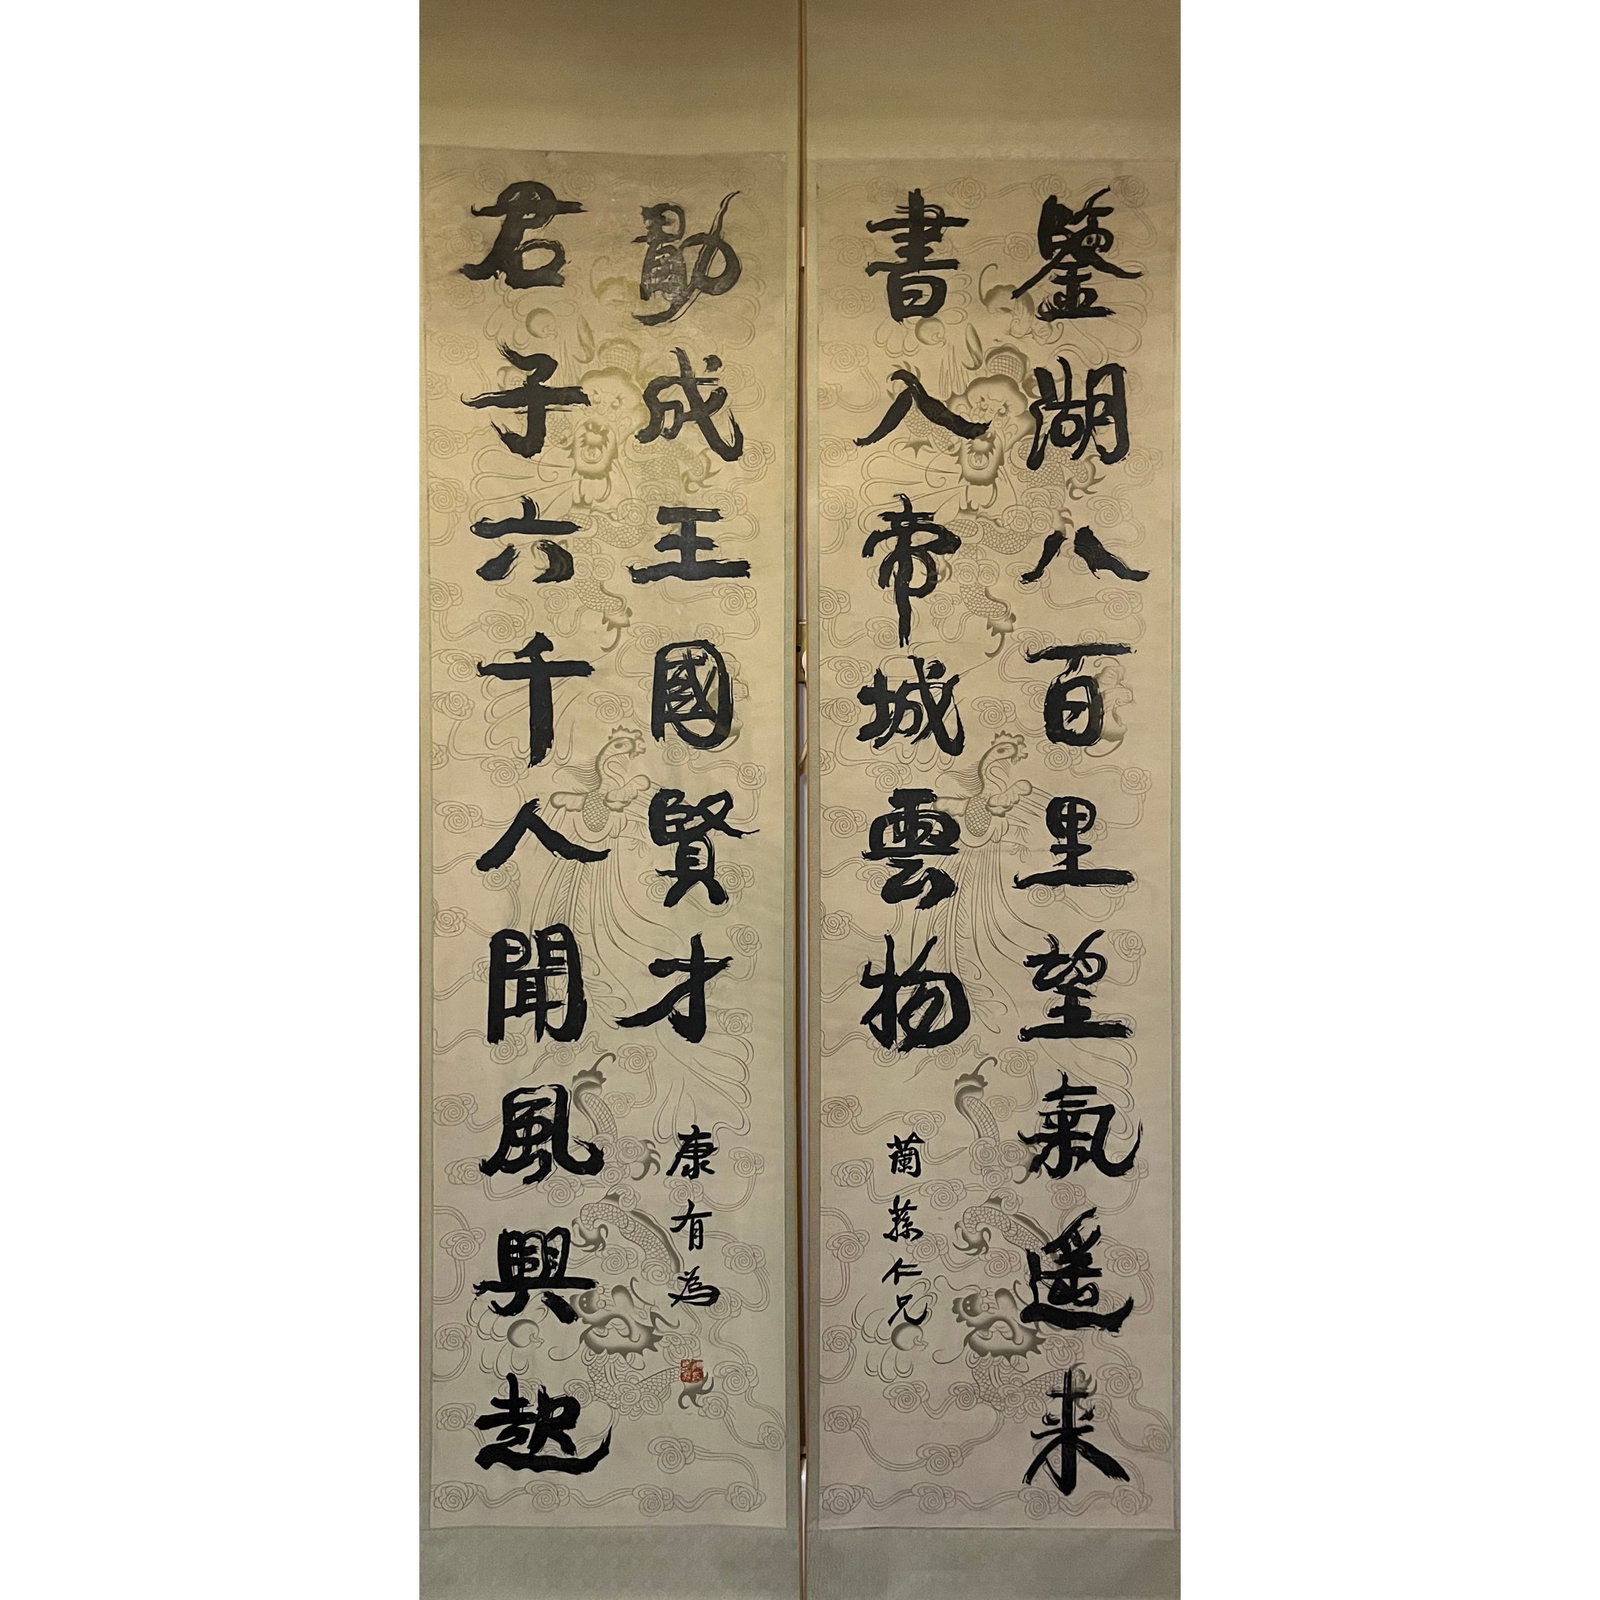 鑒湖八百里望氣遙来
書入帝城雲物
蘭蓀仁兄
君子六千人聞風興起
勖成王國賢才
康有為